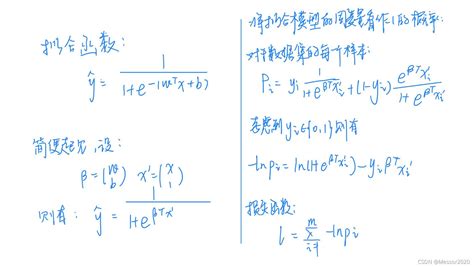 拟合函数：
ŷ = 1/(1+e^-(w^T x+b))
简便起见，设：
β = (w b) x' = (x 1)
则有：ŷ = 1/(1+e^β^T x')
将拟合模型的因变量看作1的概率：
对于数据集的每个样本：
P_i = y_i 1/(1+e^β^T x_i') + (1-y_i) e^β^T x_i'/(1+e^β^T x_i')
考虑到 y_i∈{0,1} 则有
-lnp_i = ln(1+e^β^T x_i') - y_i β^T x_i'
损失函数：
l = Σ_{i=1}^m -lnp_i
CSDN @Messor2020